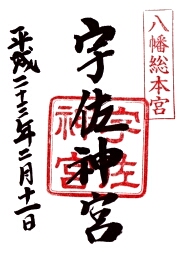 八幡総本宮
宇佐神宮
宇佐神宮
平成二十三年二月十一日